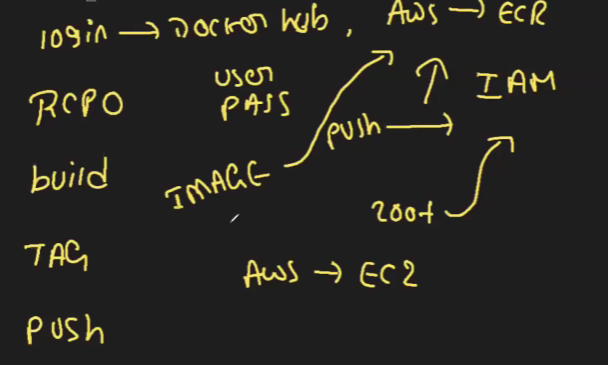 login → Docker hub, AWS → ECR
REPO USER PASS IAM
PUSH →
build IMAGE
200+
TAG AWS → EC2
PUSH